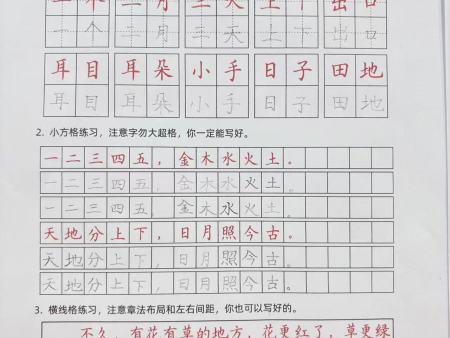 一个 三月 三天 上下 出口
耳目 耳朵 小手 日子 田地
耳目 耳朵 小手 日子 田地
2. 小方格练习，注意字勿大超格，你一定能写好。
一二三四五，金木水火土。
一二三四五，金木水火土。
一二三四五，金木水火土。
天地分上下，日月照今古。
天地分上下，日月照今古。
天地分上下，日月照今古。
3. 横线格练习，注意章法布局和左右间距，你也可以写好的。
不久，有花有草的地方，花更红了，草更绿